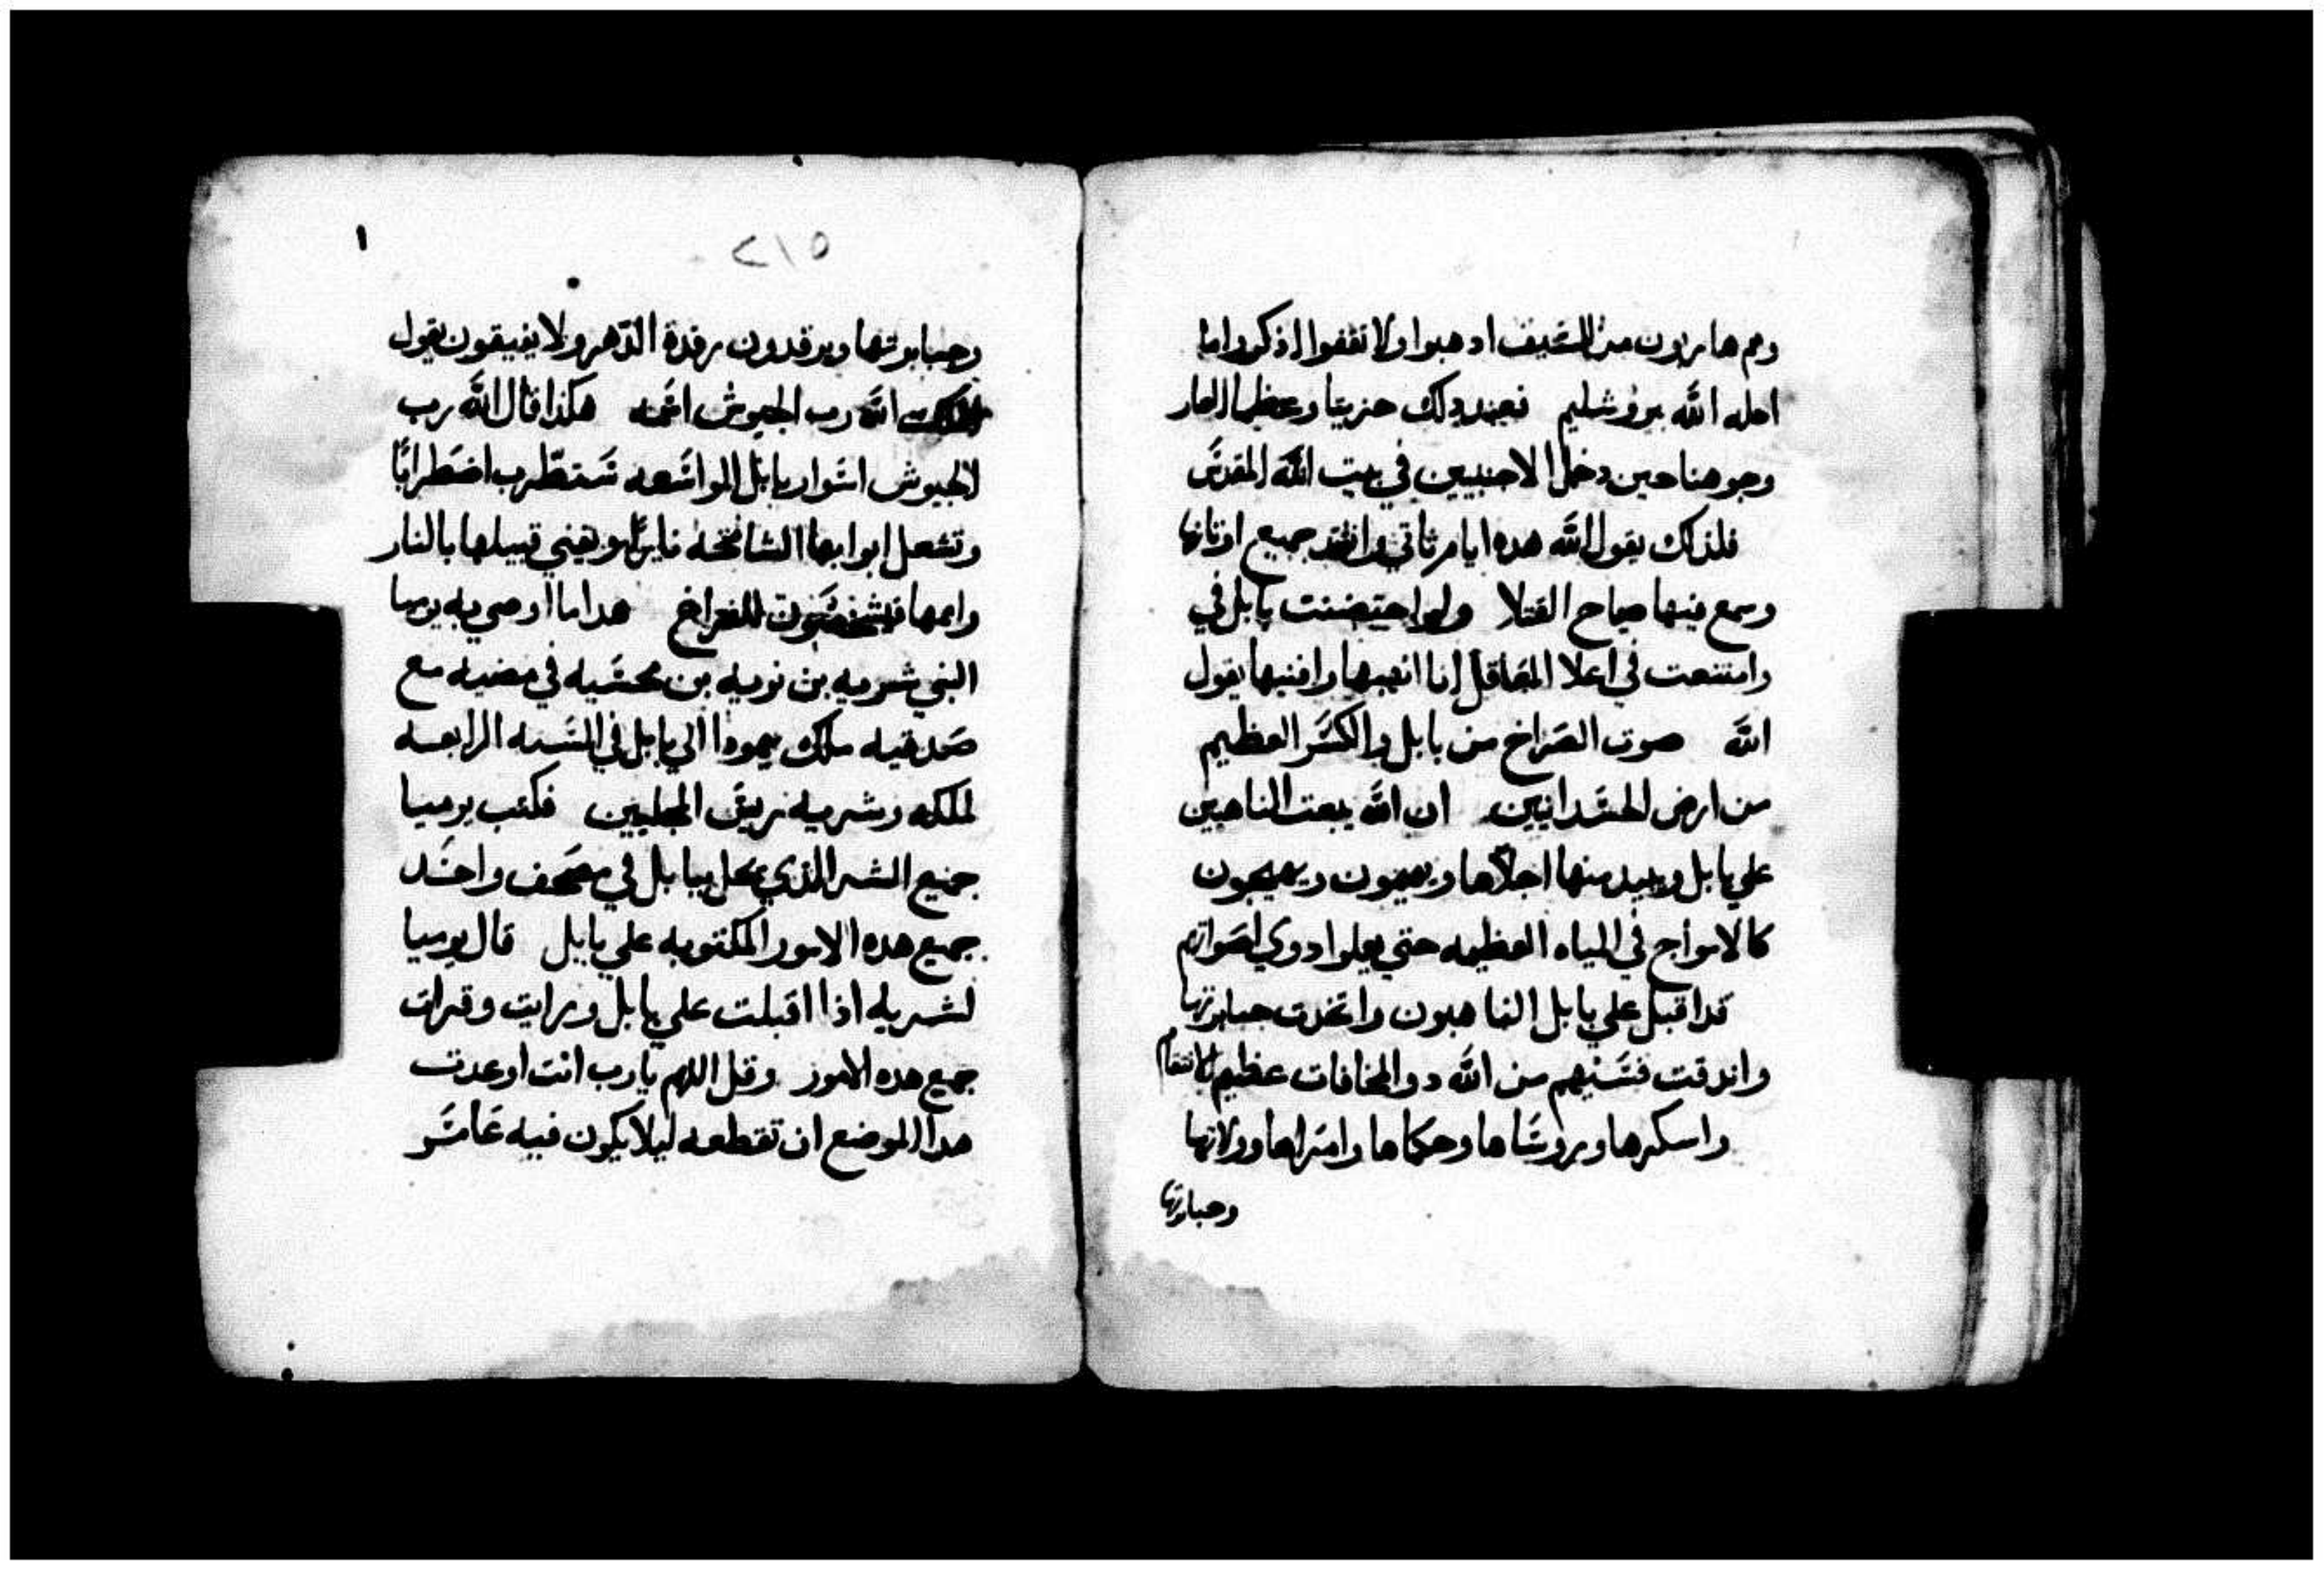 وهم هاربون من السيف ادهبوا ولا تقفوا اذكروا ما
احله الله بيروشليم فعند دلك حزينا وعظما العار
وجوهنا حين دخل الاجنبيين في بيت الله المقدس
فلذلك يقول الله هده ايام تاتي وانتقد جميع اوتانها
وسمع فيها صياح القتلا ولو احتضنت بابل في
وامتنعت في اعلا المعاقل انا انهبها وافنيها يقول
الله صوت الصراخ من بابل والكسر العظيم
من ارض الكسدانيين ان الله يبعت الناهبين
علي بابل ويبيد منها اجلاها ويهيجون ويهيجون
كالامواج في المياه العظيمه حتي يعلوا دوي اصواتهم
قد اقبل علي بابل الناهبون واتخدت جبابرتها
واندقت قسيهم من الله دو المخافات عظيم الانتقام
واسكرها وروساها وحكماها وامراها وولاتها
وجبابرتها
٢١٥
١
وجبابرتها ويرقدون رقدة الدهر ولا يفيقون يقول
الله رب الجيوش اسمه هكذا قال الله رب
الجيوش اسوار بابل الواسعه ستطرب اضطرابا
وتشعل ابوابها الشامخه بالنار
هدا ما اوصي به يرميا
النبي شريه بن نوريه بن محسيه في مضيه مع
صدقيه ملك يهودا الي بابل في السنه الرابعه
لملكه وشريه ريس المجلبين فكتب يرميا
جميع الشر الذي يحل ببابل في مصحف واحد
جميع هده الامور المكتوبه علي بابل قال يرميا
لشريه اذا اقبلت علي بابل ورايت وقرات
جميع هده الامور وقل اللهم يا رب انت اوعدت
هدا الموضع ان تقطعه ليلا يكون فيه عامر